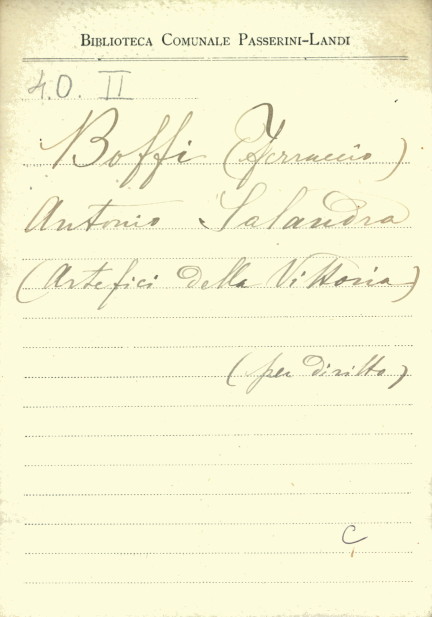 BIBLIOTECA COMUNALE PASSERINI-LANDI
4.O. II
Boffi (Ferruccio)
Antonio Salandra
(Artefici della Vittoria)
(per diritto)
C